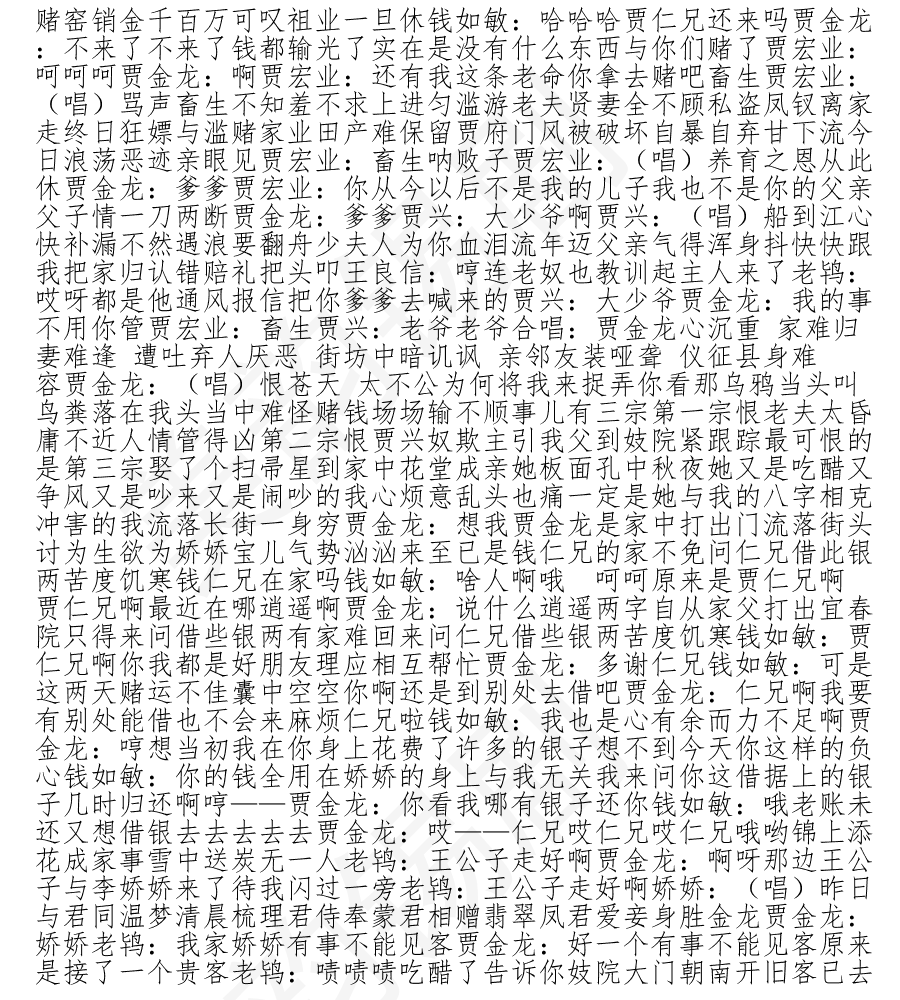 赌窑销金千百万可叹祖业一旦休钱如敏：哈哈哈贾仁兄还来吗贾金龙
：不来了不来了钱都输光了实在是没有什么东西与你们赌了贾宏业：
呵呵呵贾金龙：啊贾宏业：还有我这条老命你拿去赌吧畜生贾宏业：
（唱）骂声畜生不知羞不求上进匀滥游老夫贤妻全不顾私盗凤钗离家
走终日狂嫖与滥赌家业田产难保留贾府门风被破坏自暴自弃甘下流今
日浪荡恶迹亲眼见贾宏业：畜生呐败子贾宏业：（唱）养育之恩从此
休贾金龙：爹爹贾宏业：你从今以后不是我的儿子我也不是你的父亲
父子情一刀两断贾金龙：爹爹贾兴：大少爷啊贾兴：（唱）船到江心
快补漏不然遇浪要翻舟少夫人为你血泪流年迈父亲气得浑身抖快快跟
我把家归认错赔礼把头叩王良信：哼连老奴也教训起主人来了老鸨：
哎呀都是他通风报信把你爹爹去喊来的贾兴：大少爷贾金龙：我的事
不用你管贾宏业：畜生贾兴：老爷老爷合唱：贾金龙心沉重 家难归
妻难逢 遭吐弃人厌恶 街坊中暗讥讽 亲邻友装哑聋 仪征县身难
容贾金龙：（唱）恨苍天 太不公为何将我来捉弄你看那乌鸦当头叫
鸟粪落在我头当中难怪赌钱场场输不顺事儿有三宗第一宗恨老夫太昏
庸不近人情管得凶第二宗恨贾兴奴欺主引我父到妓院紧跟踪最可恨的
是第三宗娶了个扫帚星到家中花堂成亲她板面孔中秋夜她又是吃醋又
争风又是吵来又是闹吵的我心烦意乱头也痛一定是她与我的八字相克
冲害的我流落长街一身穷贾金龙：想我贾金龙是家中打出门流落街头
讨为生欲为娇娇宝儿气势汹汹来至已是钱仁兄的家不免问仁兄借此银
两苦度饥寒钱仁兄在家吗钱如敏：啥人啊哦 呵呵原来是贾仁兄啊
贾仁兄啊最近在哪逍遥啊贾金龙：说什么逍遥两字自从家父打出宜春
院只得来问借些银两有家难回来问仁兄借些银两苦度饥寒钱如敏：贾
仁兄啊你我都是好朋友理应相互帮忙贾金龙：多谢仁兄钱如敏：可是
这两天赌运不佳囊中空空你啊还是到别处去借吧贾金龙：仁兄啊我要
有别处能借也不会来麻烦仁兄啦钱如敏：我也是心有余而力不足啊贾
金龙：哼想当初我在你身上花费了许多的银子想不到今天你这样的负
心钱如敏：你的钱全用在娇娇的身上与我无关我来问你这借据上的银
子几时归还啊哼——贾金龙：你看我哪有银子还你钱如敏：哦老账未
还又想借银去去去去去贾金龙：哎——仁兄哎仁兄哎仁兄哦哟锦上添
花成家事雪中送炭无一人老鸨：王公子走好啊贾金龙：啊呀那边王公
子与李娇娇来了待我闪过一旁老鸨：王公子走好啊娇娇：（唱）昨日
与君同温梦清晨梳理君侍奉蒙君相赠翡翠凤君爱妾身胜金龙贾金龙：
娇娇老鸨：我家娇娇有事不能见客贾金龙：好一个有事不能见客原来
是接了一个贵客老鸨：啧啧啧吃醋了告诉你妓院大门朝南开旧客已去